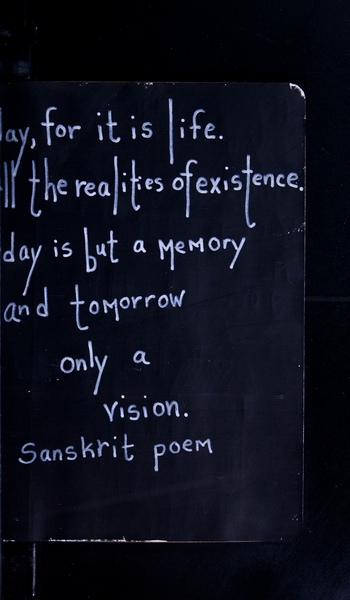 ay, for it is life.
ll the realities of existence.
day is but a memory
and tomorrow
only a
vision.
Sanskrit poem